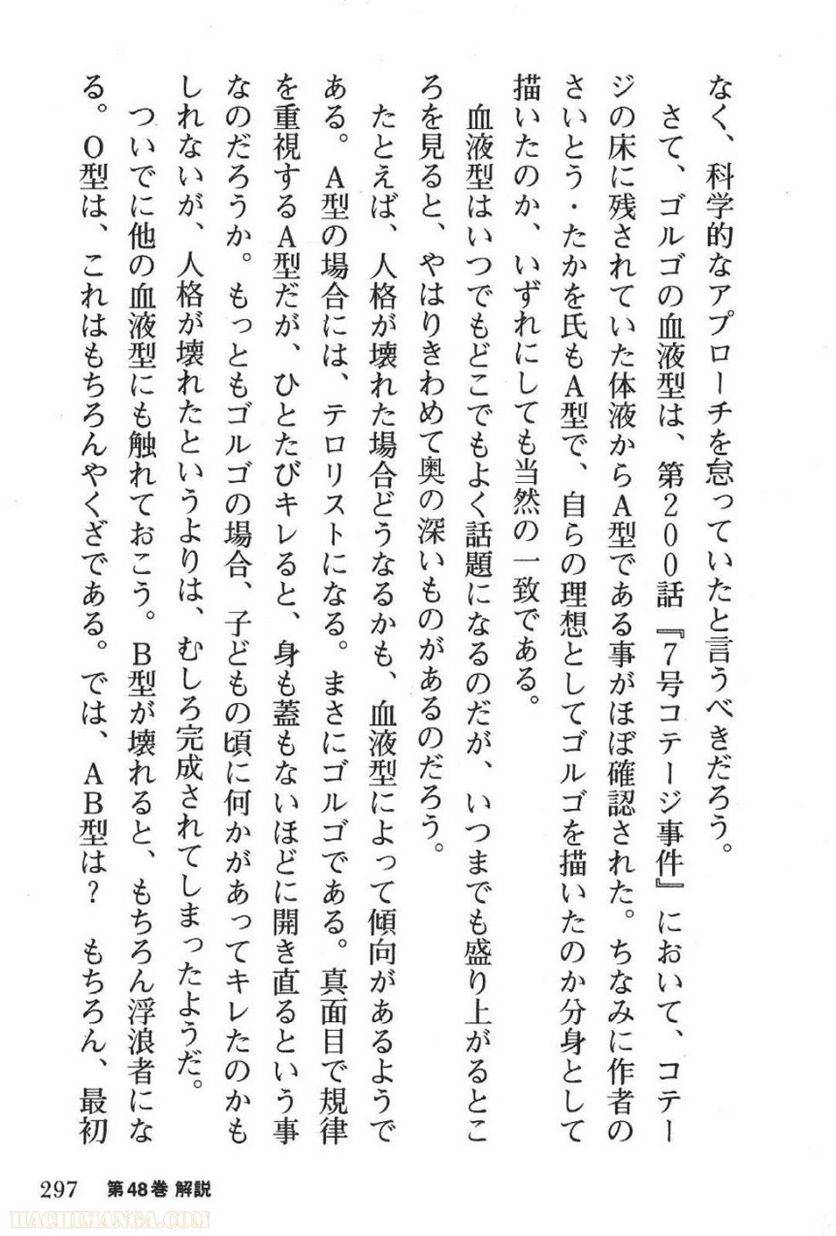 なく、科学的なアプローチを怠っていたと言うべきだろう。
さて、ゴルゴの血液型は、第２００話『７号コテージ事件』において、コテー
ジの床に残されていた体液からＡ型である事がほぼ確認された。ちなみに作者の
さいとう・たかを氏もＡ型で、自らの理想としてゴルゴを描いたのか分身として
描いたのか、いずれにしても当然の一致である。
血液型はいつでもどこでもよく話題になるのだが、いつまでも盛り上がるとこ
ろを見ると、やはりきわめて奥の深いものがあるのだろう。
たとえば、人格が壊れた場合どうなるかも、血液型によって傾向があるようで
ある。Ａ型の場合には、テロリストになる。まさにゴルゴである。真面目で規律
を重視するＡ型だが、ひとたびキレると、身も蓋もないほどに開き直るという事
なのだろうか。もっともゴルゴの場合、子どもの頃に何かがあってキレたのかも
しれないが、人格が壊れたというよりは、むしろ完成されてしまったようだ。
ついでに他の血液型にも触れておこう。Ｂ型が壊れると、もちろん浮浪者にな
る。Ｏ型は、これはもちろんやくざである。では、ＡＢ型は？　もちろん、最初
297 第48巻 解説
HACHIMANGA.COM